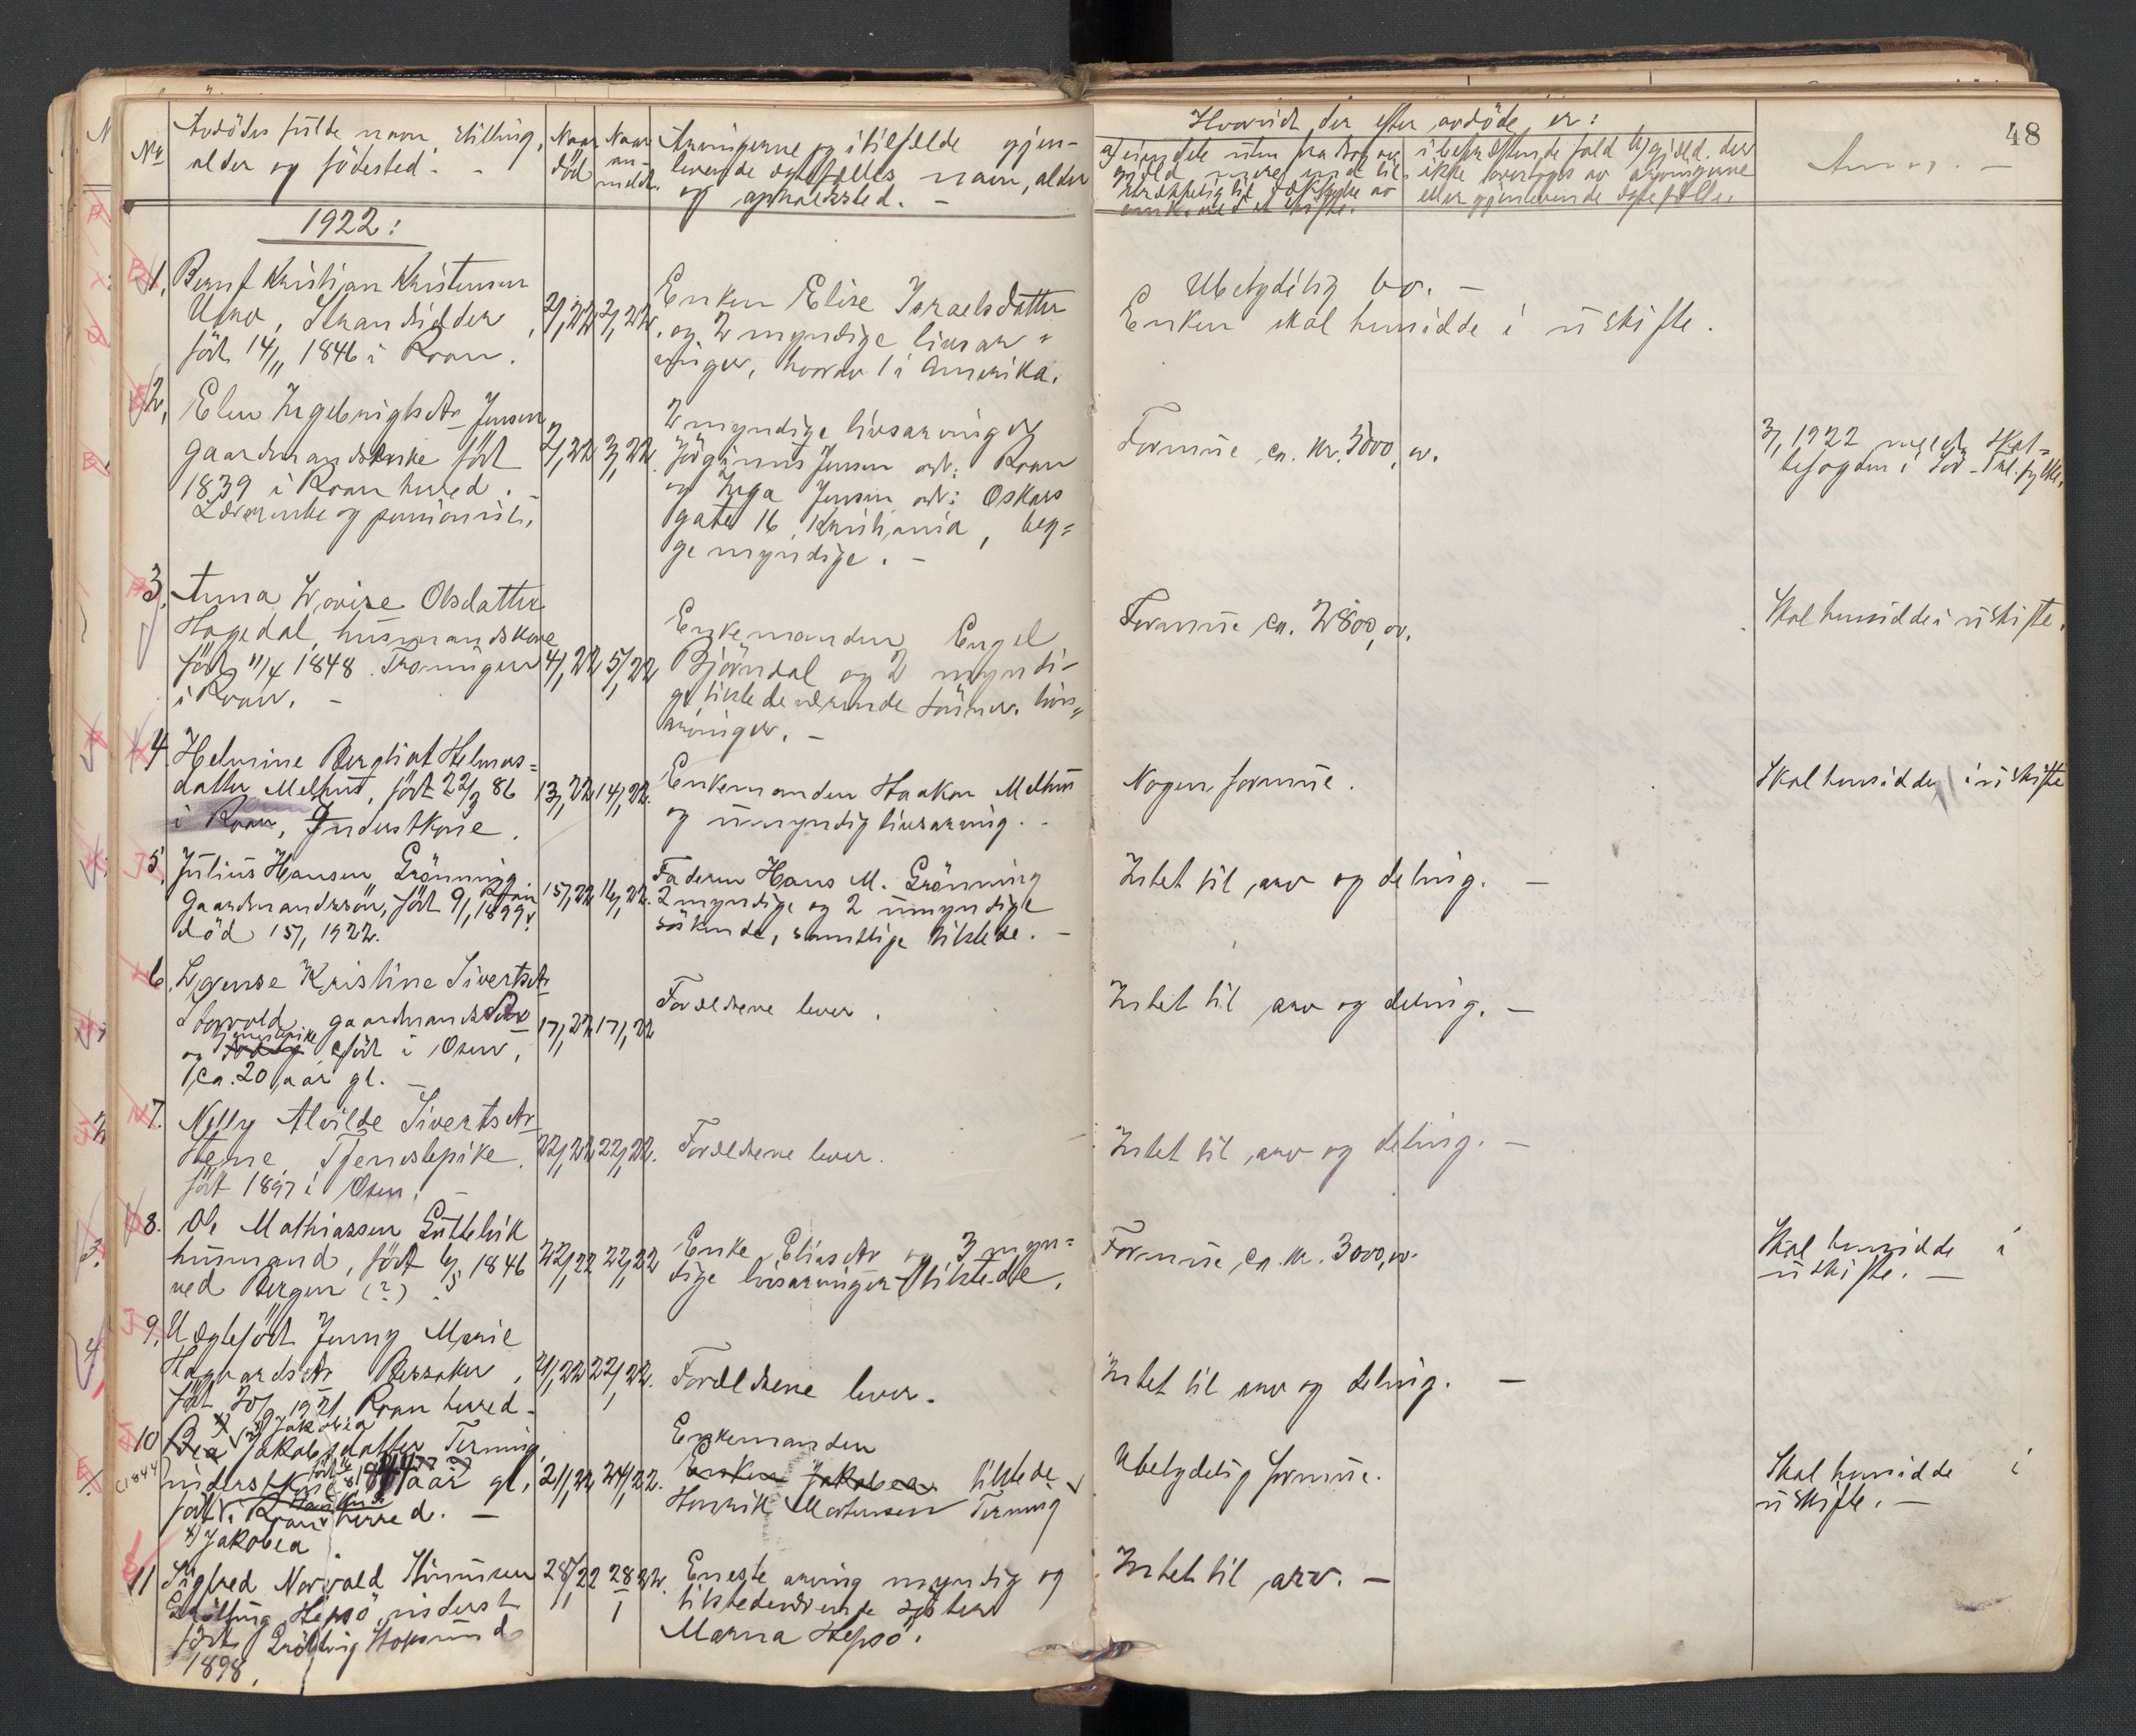 48
No
Avdödes fulde navn, stilling,
alder og födested. -
Naar
död
Naar
an-
meldt.
Arvingerne og i tilfælde gjen-
levende egtefælles navn, alder
og opholdssted. -
Hvorvidt der efter avdöde er:
a) eiendele uten fradrag av
gjæld mere end til-
strækkelig til dækkelse av
omk. ved et skifte.
i bekræftende fald b) gjæld, der
ikke overtages av arvingerne
eller gjenlevende egtefælle.
Anm. -
1922:
1. Bernt Kristian Kristensen
Strandsidder
födt 14/11 1846 i Roan.
2/1 22
2/1 22.
Enken Elise Israelsdatter
og 2 myndige livsar-
vinger, hvorav 1 i Amerika.
Ubetydelig bo. -
Enken skal hensidde i uskifte.
2. Elen Ingebrigtsdtr Jensen,
gaardmandsenke födt
1839 i Roan herred. -
og pensionist.
2/1 22
3/1 22.
2 myndige livsarvinger
Jörginus Jensen adr: Roan
og Inga Jensen adr: Oskars
gate 16, Kristiania, beg-
ge myndige. -
Formue ca. kr. 5000,00.
3/1 1922 meldt skat-
tefogden i Sör-Trl. fylke.
3. Anna Lovise Olsdatter
Hagedal, husmandskone
födt 11/4 1848
i Roan. -
4/1 22
5/1 22
Enkemanden Engel
Björndal og 2 myndi-
ge tilstedeværende sönner, livs-
arvinger. -
Formue ca. 2800,00.
Skal hensidde i uskifte.
4 Helmine Bergliot Helmers-
datter Melhus, födt 22/3 86
i Roan, Inderstkone.
13/1 22
14/1 22.
Enkemanden Haakon Melhus
og umyndig livsarving. -
Nogen formue.
Skal hensidde i uskifte
5. Julius Hansen Grönning
Gaardmandssön, födt 9/1 1899 i Roan
död 15/1 1922.
15/1 22
16/1 22.
Faderen Hans M. Grönning
2 myndige og 2 umyndige
söskende, samtlige tilstede. -
Intet til arv og deling. -
6. Kristine Sivertsdtr
Storvold, gaardmandsdtr
og tjenestepike födt i Osen,
ca. 20 aar gl. -
17/1 22
17/1 22
Forældrene lever.
Intet til arv og deling. -
7. Nelly Alvilde Sivertsdtr
Stene, Tjenestepike.
födt 1897 i Osen. -
22/1 22
22/1 22.
Forældrene lever.
Intet til arv og deling. -
8. Ole Mathiassen Guttelvik
husmand, födt 6/5 1846
ved Bergen (?).
22/1 22
22/1 22
Enke Eliasdtr og 3 myn-
dige livsarvinger tilstede.
Formue ca. kr. 3000,00.
Skal hensidde i
uskifte. -
9. Uegtefödt Jenny Marie
Hagbardsdtr Bessaker,
födt 30/9 1921 Roan herred.
21/1 22
22/1 22.
Forældrene lever.
Intet til arv og deling. -
10 x) Jakobea
Bea Jakobsdatter Terning
(1844
inderstkone aar gl.
födt i Roan herred. -
x) Jakobea
21/1 22
24/1 22.
Enkemanden
Enken Jakobea tilstede
Henrik Mortensen Terning
Ubetydelig formue.
Skal hensidde i
uskifte. -
11 Sigfred Norvald
Hepsö, inderst
födt Stoksund
1898.
28/1 22
28/1 22.
Eneste arving myndig og
tilstedeværende söster
Marna Hepsö.
Intet til arv. -